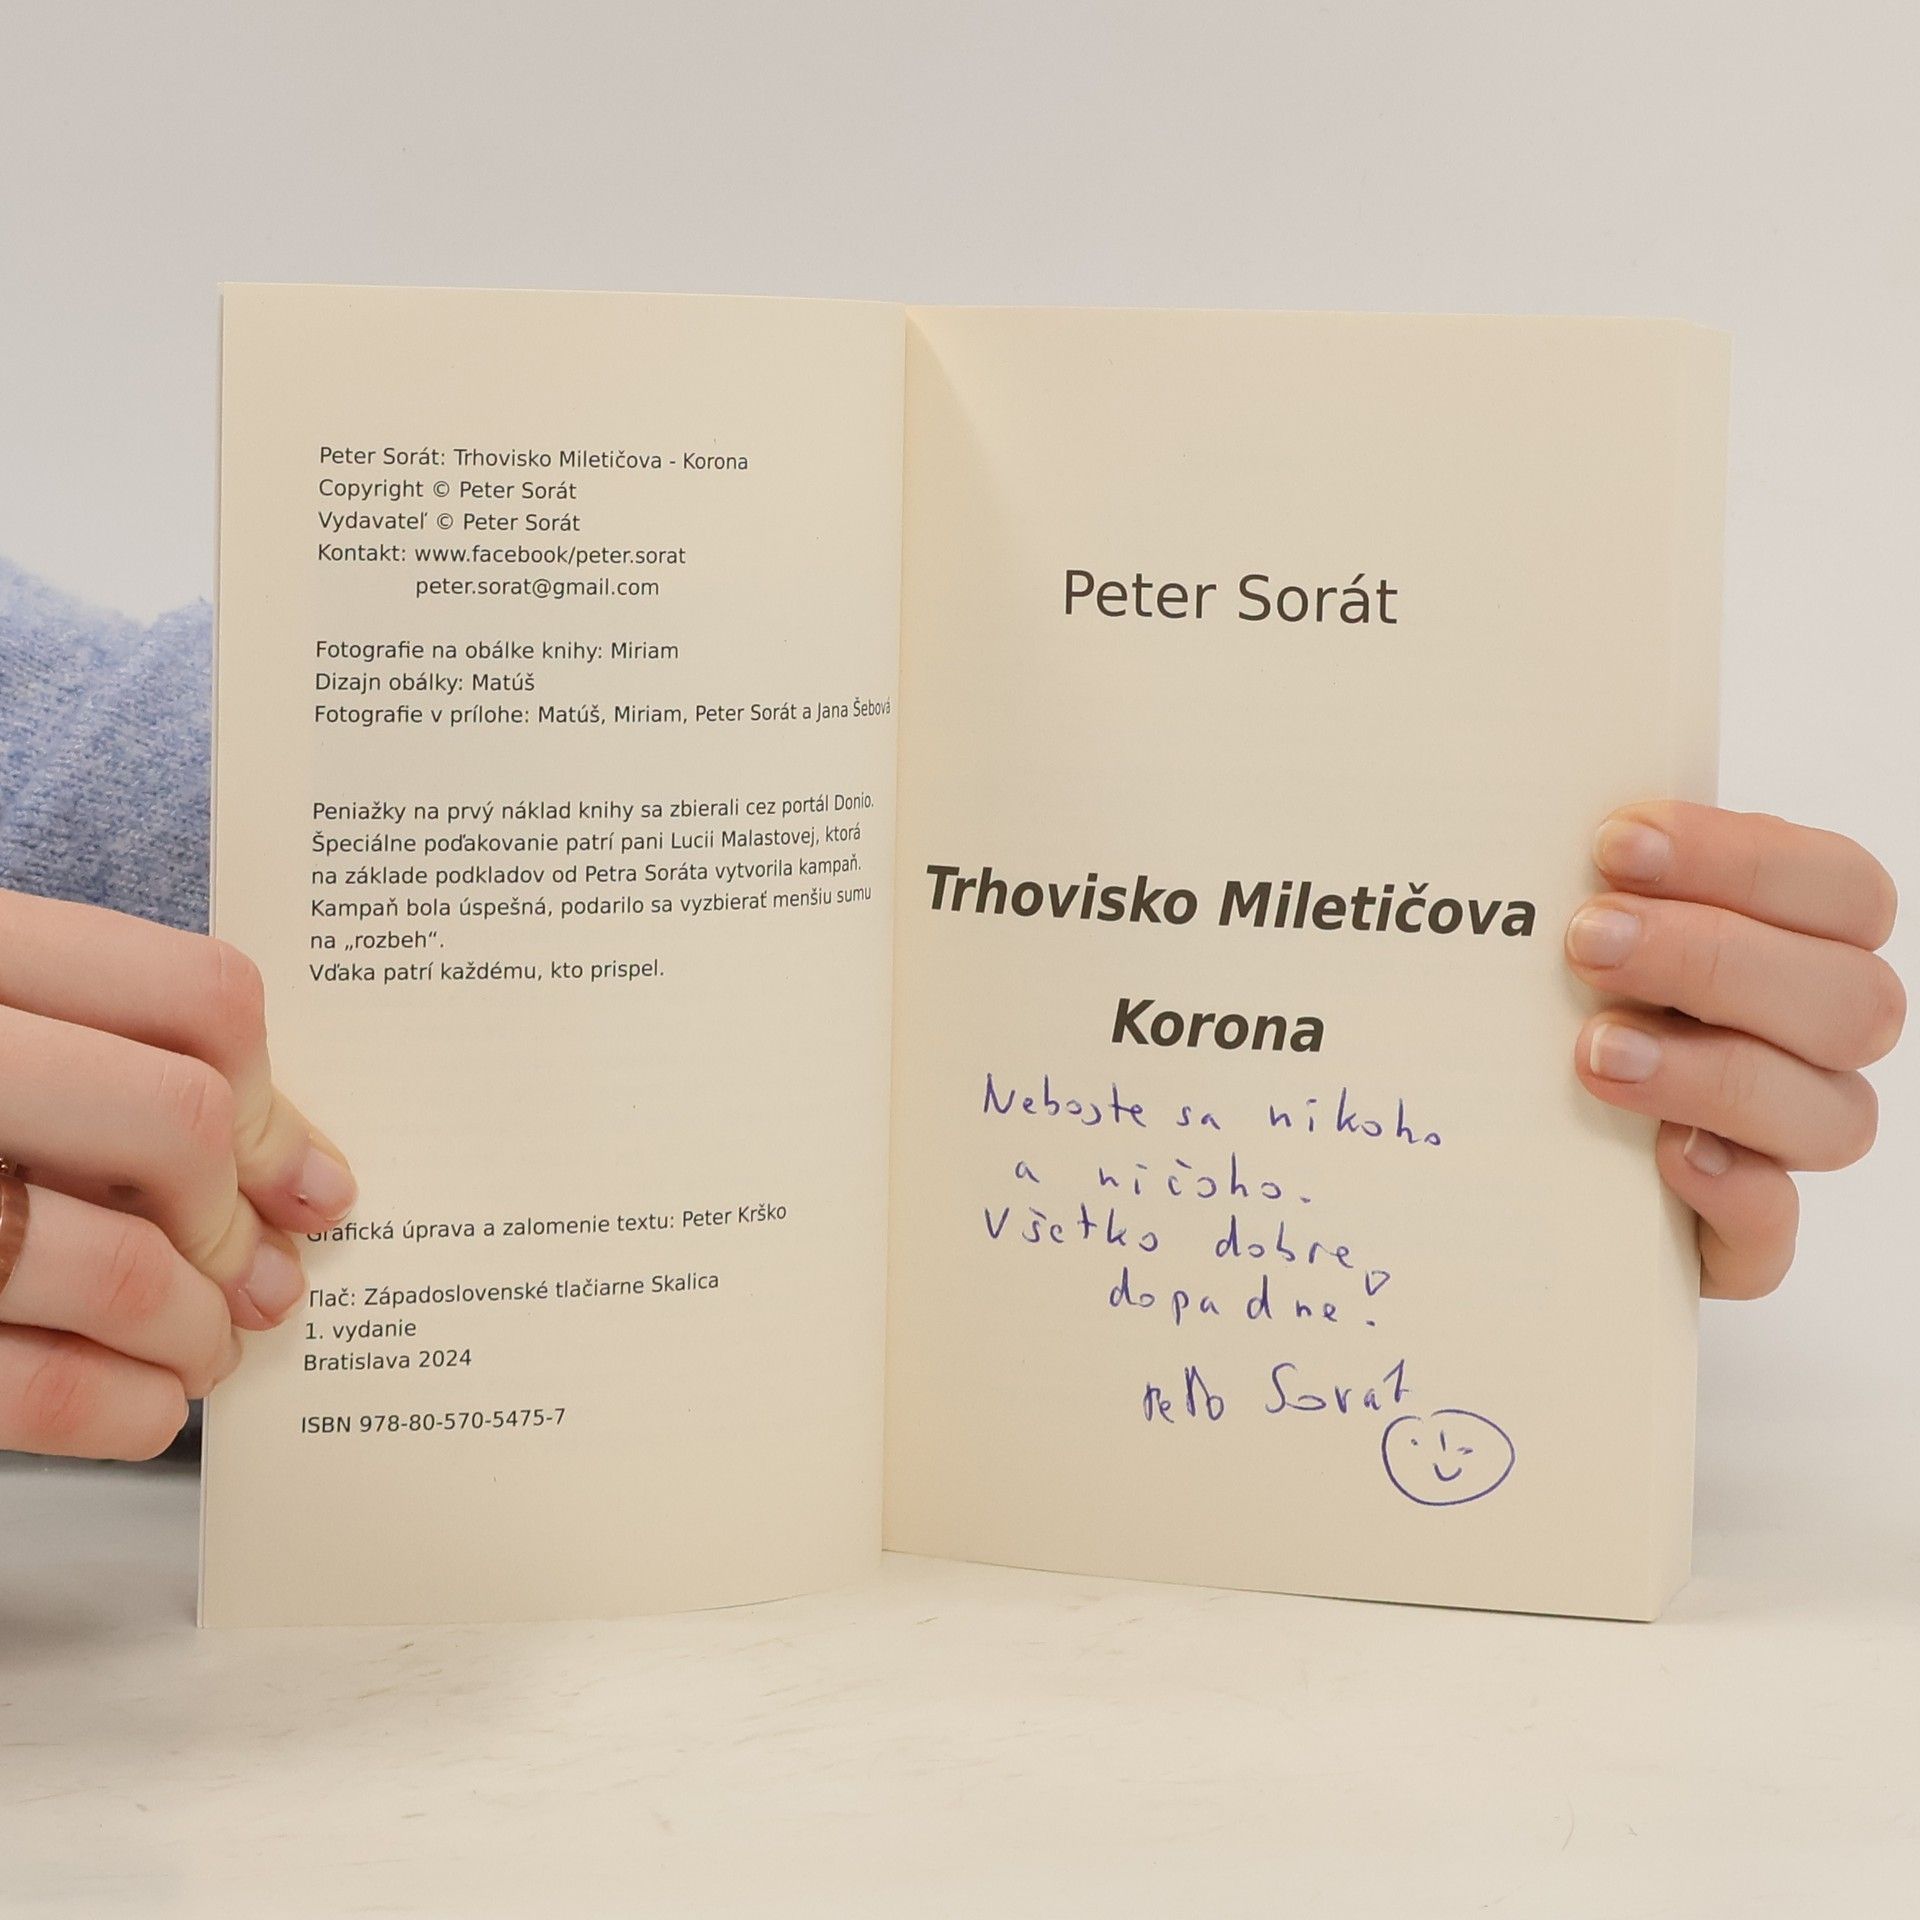 Peter Sorát: Trhovisko Miletičova - Korona
Copyright © Peter Sorát
Vydavateľ © Peter Sorát
Kontakt: www.facebook/peter.sorat
peter.sorat@gmail.com
Fotografie na obálke knihy: Miriam
Dizajn obálky: Matúš
Fotografie v prílohe: Matúš, Miriam, Peter Sorát a Jana Šebová
Peniažky na prvý náklad knihy sa zbierali cez portál Donio.
Špeciálne poďakovanie patrí pani Lucii Malastovej, ktorá
na základe podkladov od Petra Soráta vytvorila kampaň.
Kampaň bola úspešná, podarilo sa vyzbierať menšiu sumu
na „rozbeh“.
Vďaka patrí každému, kto prispel.
Grafická úprava a zalomenie textu: Peter Krško
Tlač: Západoslovenské tlačiarne Skalica
1. vydanie
Bratislava 2024
ISBN 978-80-570-5475-7
Peter Sorát
Trhovisko Miletičova
Korona
Nebojte sa nikoho
a ničoho.
Všetko dobre
dopadne!
Sorát